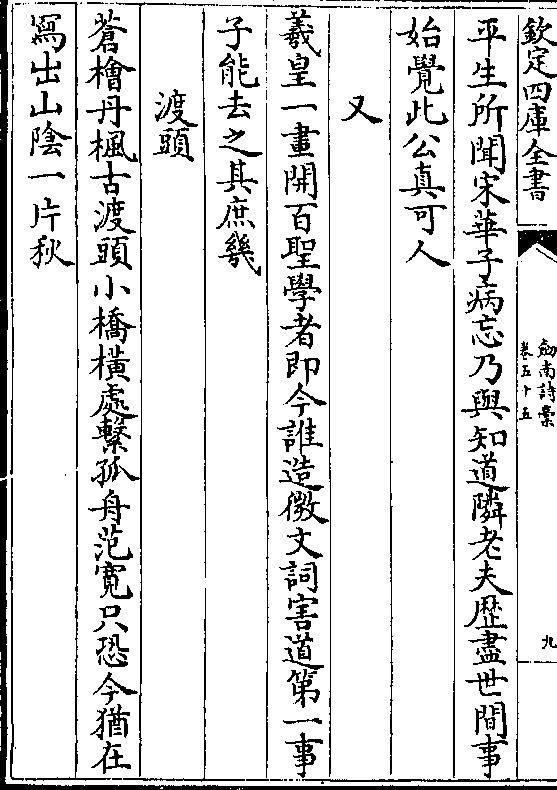 欽定四庫全書
劒南詩稾
卷五十五
九
平生所聞宋華子病忘乃與知道隣老夫歴盡世間事
始覺此公真可人
又
羲皇一畫開百聖學者即今誰造微文詞害道第一事
子能去之其庶幾
渡頭
蒼檜丹楓古渡頭小橋橫處繫孤舟范寛只恐今猶在
寫出山陰一片秋